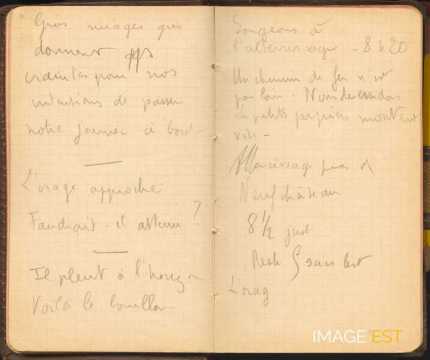 Gros nuages qui
donnent qqs
craintes pour nos
intentions de passer
notre journée ici bord
L'orage approche
Faudrait-il atterrir ?
Il pleut à l'horizon
Voilà le bouillon
Songeons à
l'atterrissage - 8 h 20
Un chemin de fer n'est
pas loin. Nous descendons
petits papiers montent
vite -
Atterrissage près
Neufchâteau
8 ½ just
Reste 5 sacs lest
L'orag
IMAGE'EST